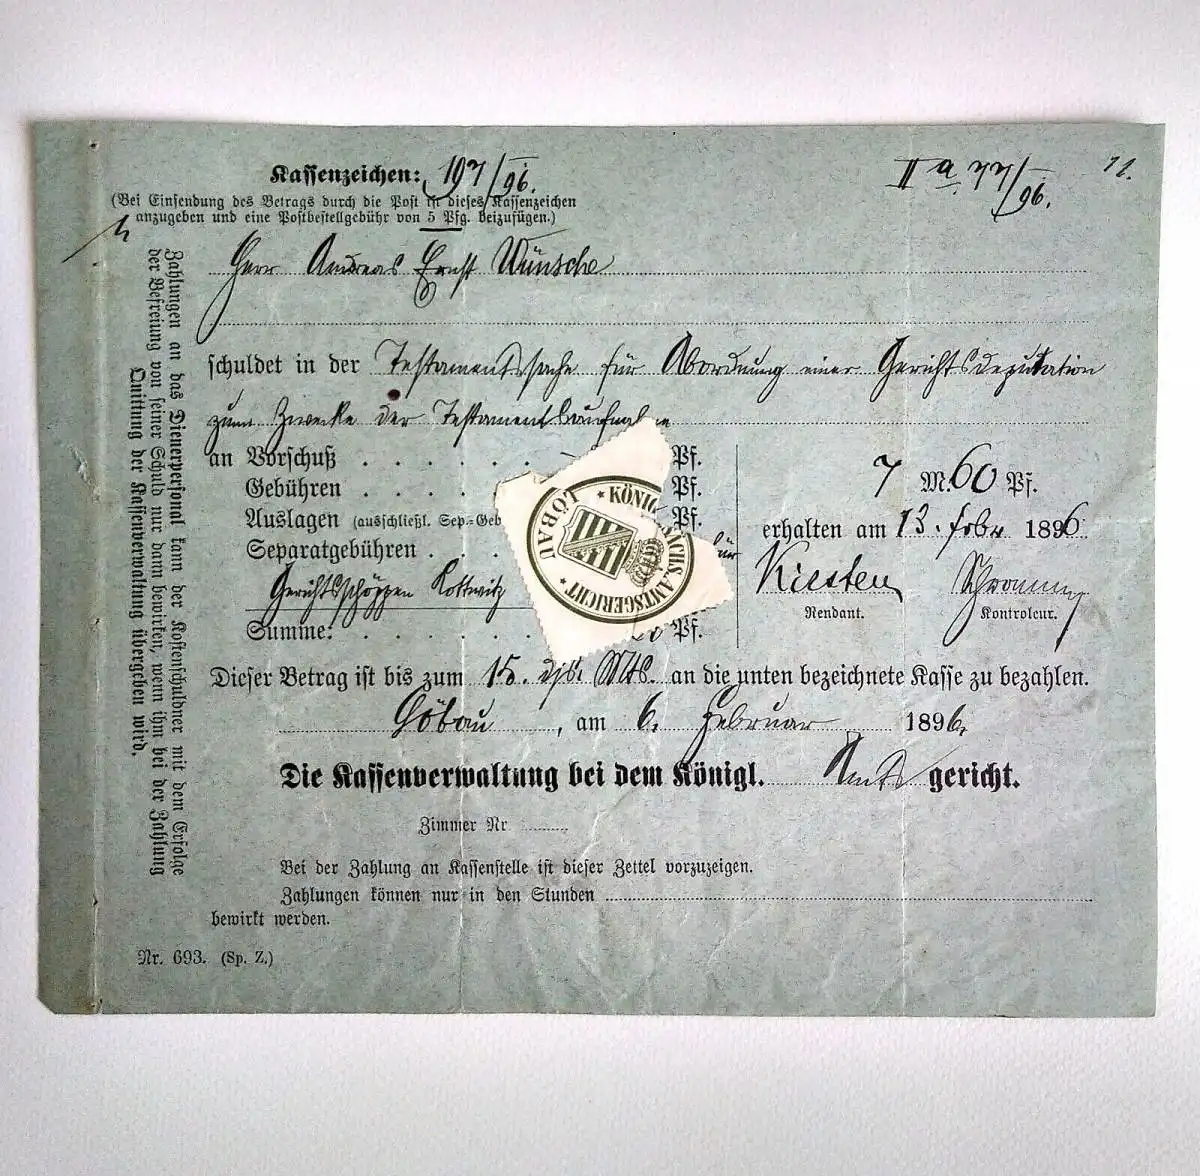 Kassenzeichen: 197/96.
II a 77/96. 11.
(Bei Einsendung des Betrags durch die Post ist dieses Kassenzeichen
anzugeben und eine Postbestellgebühr von 5 Pfg. beizufügen.)
Zahlungen an das Dienerpersonal kann der Kostenschuldner mit dem Erfolge
der Befreiung von seiner Schuld nur dann bewirken, wenn ihm bei der Zahlung
Quittung der Kassenverwaltung übergeben wird.
Herr Andreas Ernst Wünsche
schuldet in der Testamentssache für Abordnung einer Gerichtsdeputation
zum Zwecke der Testamentsaufnahme
an Vorschuß . . . . . . Pf.
Gebühren . . . . Pf.
Auslagen (ausschließl. Sep.-Geb Pf.
Separatgebühren . . für
Gerichtsschöppen Kottwitz
Summe: . . . . . . Pf.
7 M. 60 Pf.
erhalten am 13. Febr. 1896.
Kiesten
Rendant. Kontroleur.
KÖNIGL. SÄCHS. AMTSGERICHT * LÖBAU *
Dieser Betrag ist bis zum 15. djs. Mts. an die unten bezeichnete Kasse zu bezahlen.
Löbau, am 6. Februar 1896.
Die Kassenverwaltung bei dem Königl. Amtsgericht.
Zimmer Nr
Bei der Zahlung an Kassenstelle ist dieser Zettel vorzuzeigen.
Zahlungen können nur in den Stunden
bewirkt werden.
Nr. 693. (Sp. Z.)